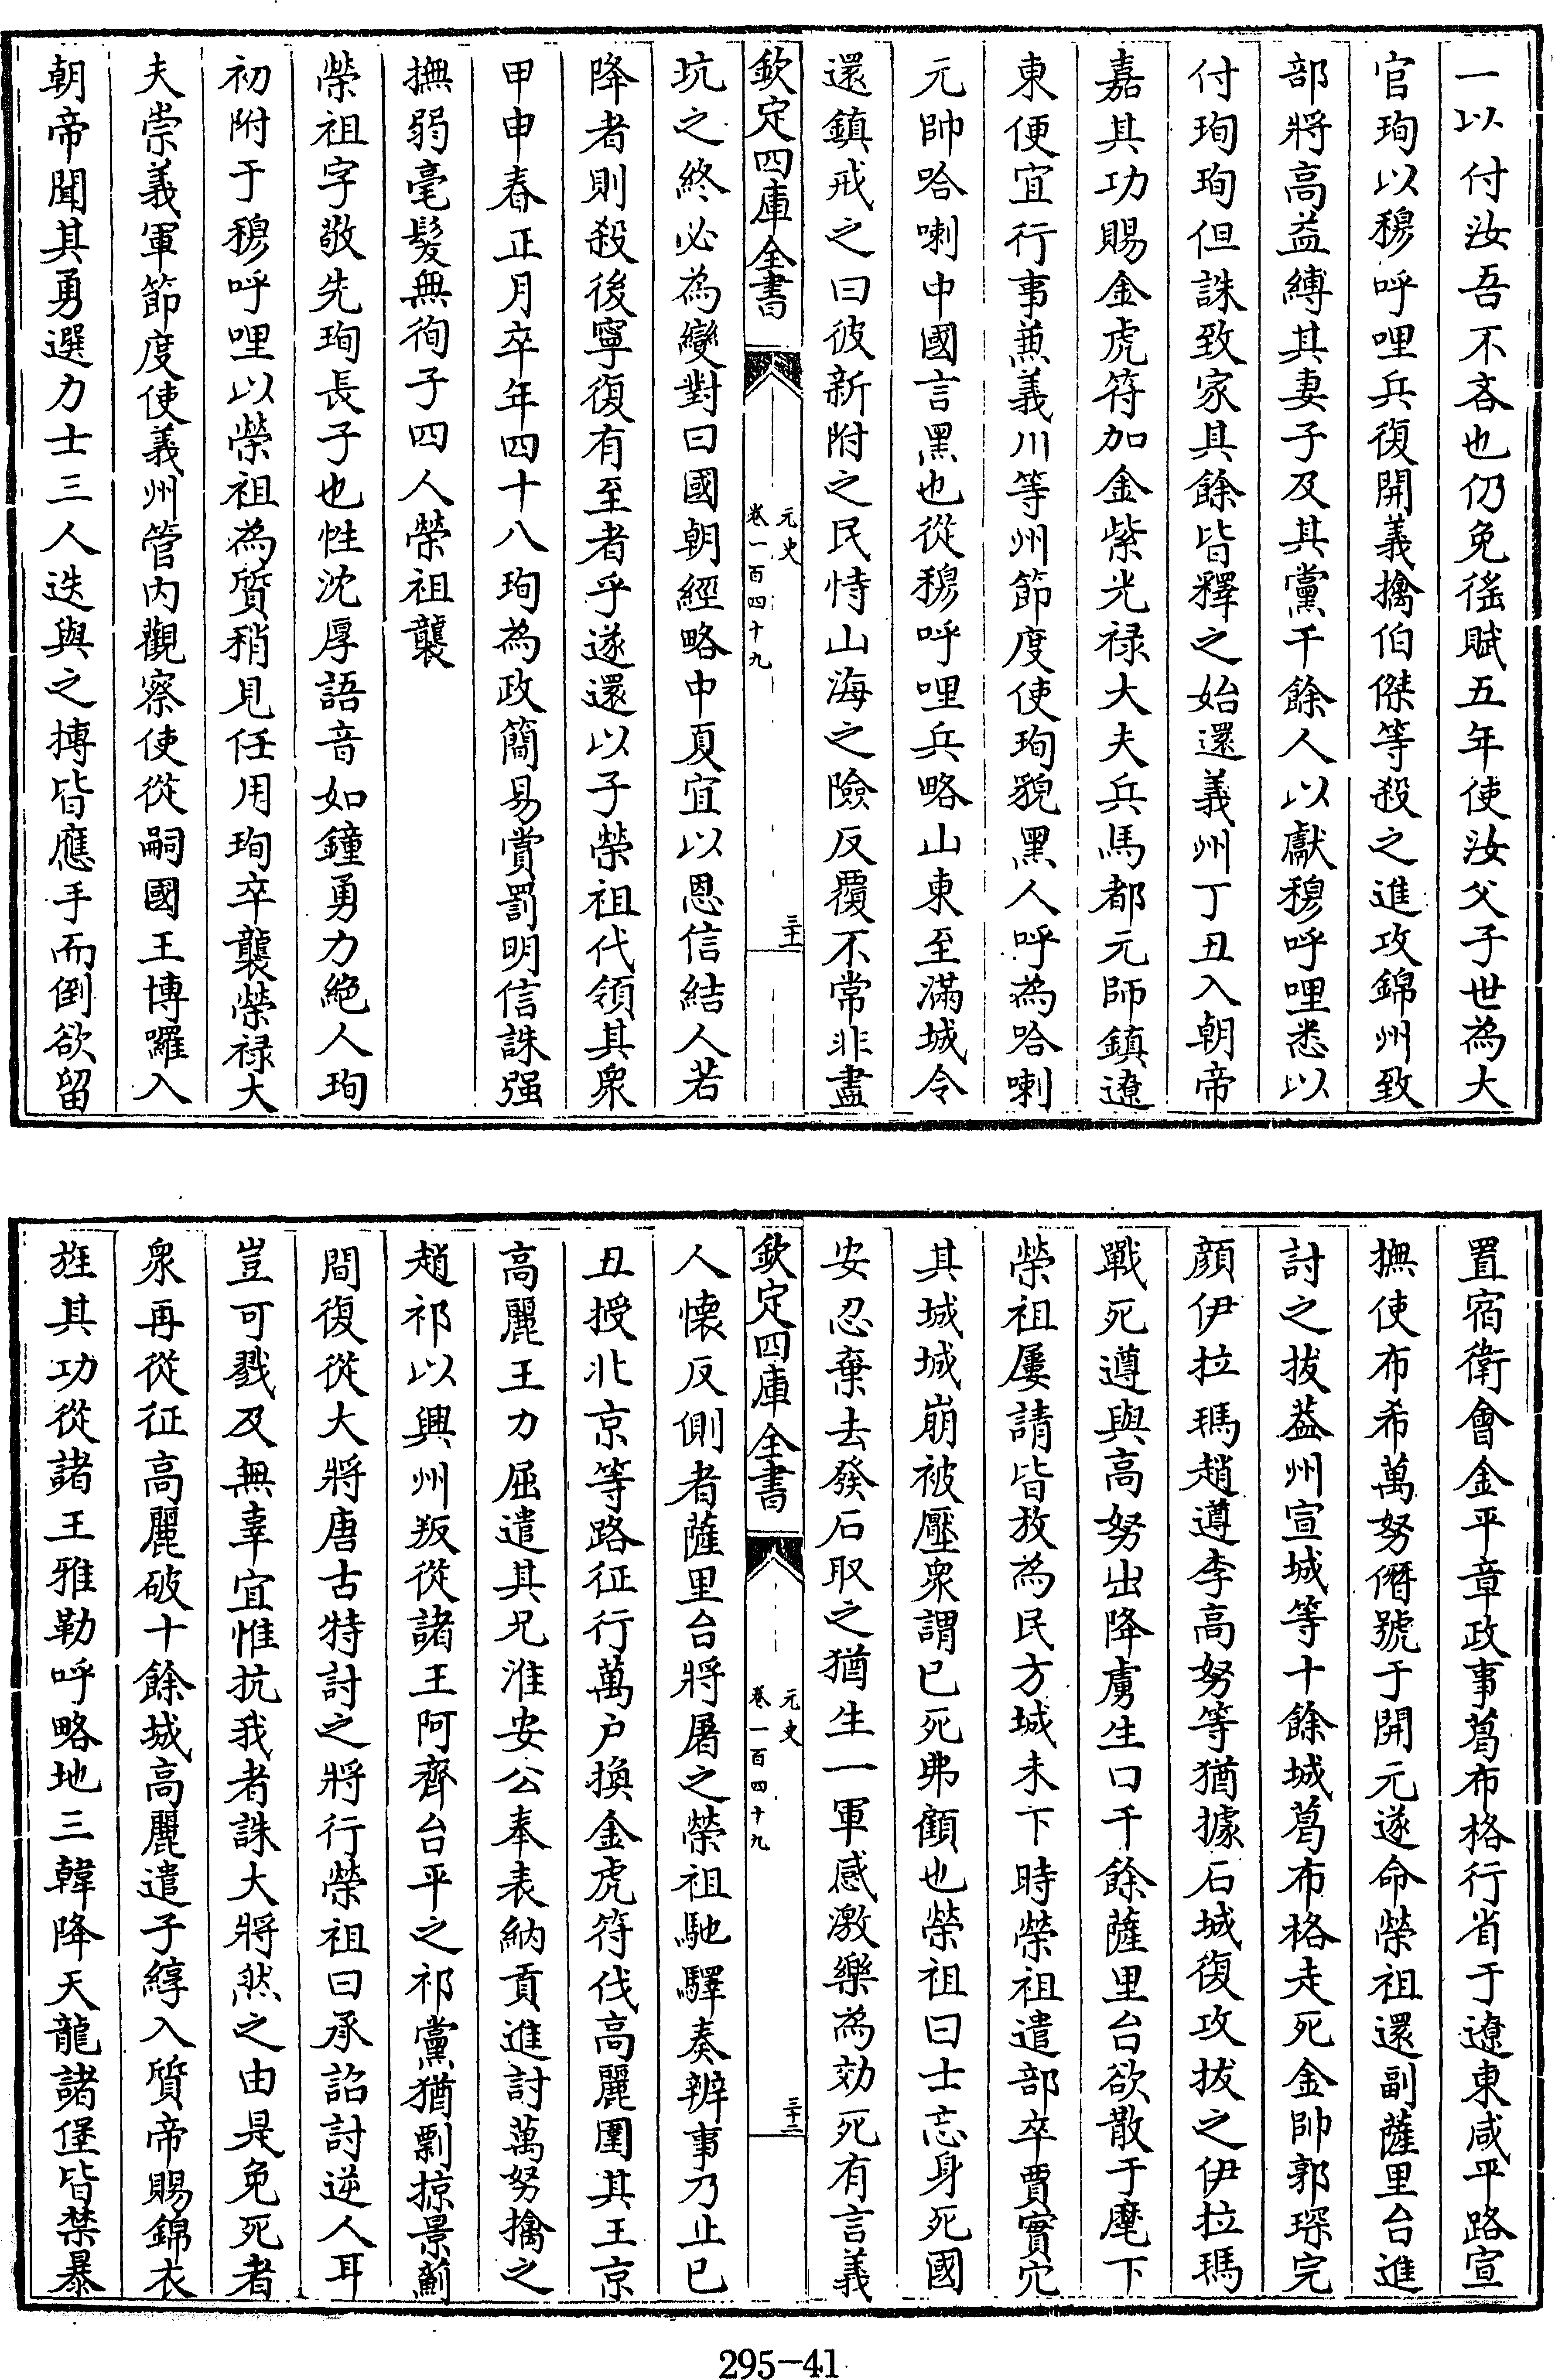 一以付汝吾不吝也仍免徭賦五年使汝父子世為大
官珣以穆呼哩兵復開義擒伯傑等殺之進攻錦州致
部將高益縛其妻子及其黨千餘人以獻穆呼哩悉以
付珣珣但誅致家其餘皆釋之始還義州丁丑入朝帝
嘉其功賜金虎符加金紫光禄大夫兵馬都元師鎮遼
東便宜行事兼義川等州節度使珣貌黑人呼為哈喇
元帥哈喇中國言黑也從穆呼哩兵略山東至滿城令
還鎮戒之曰彼新附之民恃山海之險反覆不常非盡
欽定四庫全書
元史
卷一百四十九
三十一
坑之終必為變對曰國朝經略中夏宜以恩信結人若
降者則殺後寧復有至者乎遂還以子榮祖代領其衆
甲申春正月卒年四十八珣為政簡易賞罰明信誅强
撫弱毫髮無徇子四人榮祖襲
榮祖字敬先珣長子也性沈厚語音如鐘勇力絕人珣
初附于穆呼哩以榮祖為質稍見任用珣卒襲榮禄大
夫崇義軍節度使義州管内觀察使從嗣國王博囉入
朝帝聞其勇選力士三人迭與之搏皆應手而倒欲留
置宿衛會金平章政事葛布格行省于遼東咸平路宣
撫使布希萬努僭號于開元遂命榮祖還副薩里台進
討之拔葢州宣城等十餘城葛布格走死金帥郭琛完
顔伊拉瑪趙遵李高努等猶據石城復攻拔之伊拉瑪
戰死遵與高努出降虜生口千餘薩里台欲散于麾下
榮祖屢請皆放為民方城未下時榮祖遣部卒賈實穴
其城城崩被壓衆謂已死弗顧也榮祖曰士忘身死國
安忍棄去發石取之猶生一軍感激樂為効死有言義
欽定四庫全書
元史
卷一百四十九
三十二
人懷反側者薩里台將屠之榮祖馳驛奏辨事乃止己
丑授北京等路征行萬户換金虎符伐高麗圍其王京
高麗王力屈遣其兄淮安公奉表納貢進討萬努擒之
趙祁以興州叛從諸王阿齊台平之祁黨猶剽掠景薊
間復從大將唐古特討之將行榮祖曰承詔討逆人耳
豈可戮及無辜宜惟抗我者誅大將然之由是免死者
衆再從征高麗破十餘城高麗遣子綧入質帝賜錦衣
旌其功從諸王雅勒呼略地三韓降天龍諸堡皆禁暴
295-41